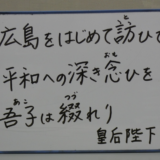 広島をはじめて訪ひて
平和への深き念ひを
吾子は綴れり
皇后陛下